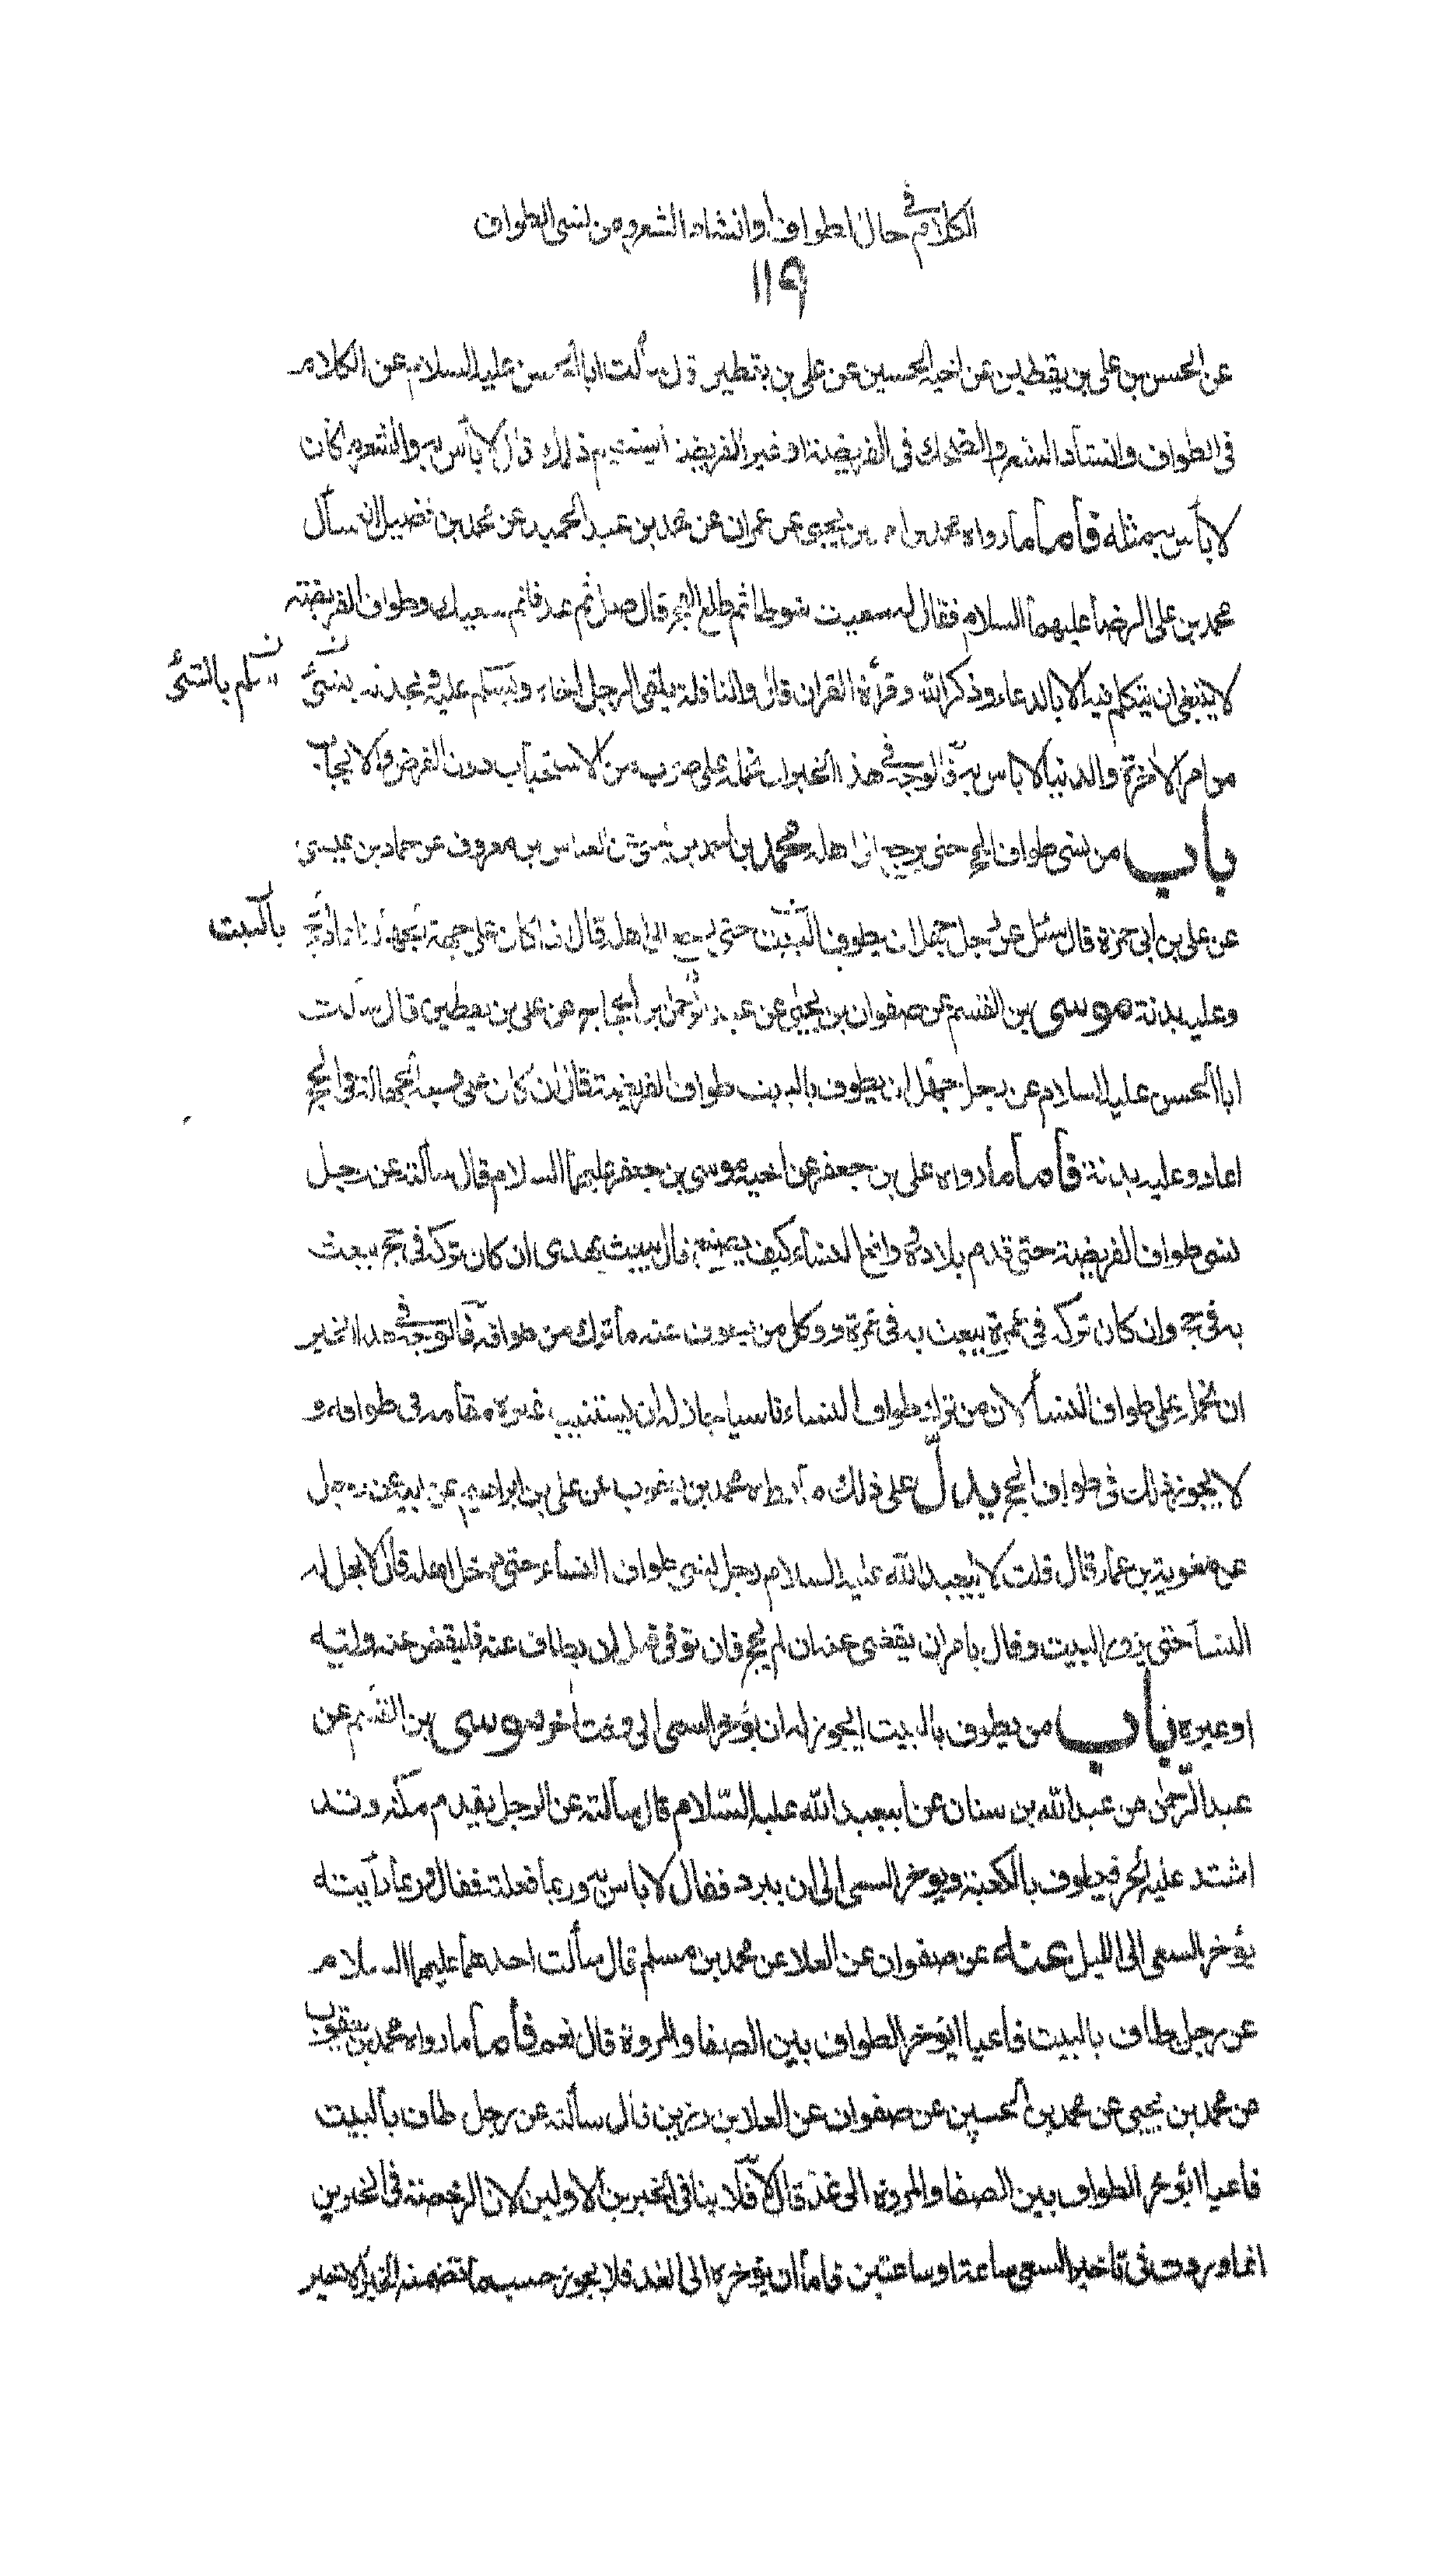 الكلام في حال الطواف وانشاد الشعر ومن نسى الطواف
١١٩
عن الحسن بن على بن يقطين عن اخيه الحسين عن على بن يقطين قال سألت ابا الحسن عليه السلام عن الكلام
فى الطواف وانشاد الشعر والضحك فى الفريضة او غير الفريضة أيستقيم ذلك قال لا بأس به والشعر ما كان
لا بأس بمثله فأما ما رواه محمد بن احمد بن يحيى عن عمران عن محمد بن عبد الحميد عن محمد بن فضيل انه سأل
محمد بن على الرضا عليهما السلام فقال له سعيت شوطا ثم طلع الفجر قال صل ثم عد فاتم سعيك وطواف الفريضة
لا ينبغى ان يتكلم فيه الا بالدعاء وذكر الله وقرأة القران قال والنافلة يلقى الرجل اخاه ويسلم عليه ويحدثه بشئ
يسلم بالشئ
من امر الاخرة والدنيا لا بأس به فالوجه في هذا الخبر ان نحمله على ضرب من الاستحباب دون الفرض والايجاب
باب من نسى طواف الحج حتى يرجع الى اهله محمد بن احمد بن يحيى عن العباس بن معروف عن حماد بن عيسى
عن على بن ابى حمزة قال سئل عن رجل جهل ان يطوف بالبيت حتى يرجع الى اهله قال اذا كان على جهة الجهالة اعاد الحج
بالبيت
وعليه بدنة موسى بن القسم عن صفوان بن يحيى عن عبد الرحمن بن الحجاج عن على بن يقطين قال سألت
ابا الحسن عليه السلام عن رجل جهل ان يطوف بالبيت طواف الفريضة قال ان كان على وجه الجهالة فى الحج
اعاد وعليه بدنة فأما ما رواه على بن جعفر عن اخيه موسى بن جعفر عليهما السلام قال سألته عن رجل
نسى طواف الفريضة حتى قدم بلاده وواقع النساء كيف يصنع قال يبعث بهدى ان كان تركه فى حج يبعث
به فى حج وان كان تركه فى عمرة يبعث به فى عمرة ووكل من يطوف عنه ما ترك من طوافه فالوجه في هذا الخبر
ان نحمله على طواف النسأ لان من ترك طواف النساء ناسيا جاز له ان يستنيب غيره مقامه فى طوافه و
لا يجوز ذلك فى طواف الحج يدل على ذلك ما رواه محمد بن يعقوب عن على بن ابراهيم عن ابيه عن رجل
عن معوية بن عمار قال قلت لابيعبد الله عليه السلام رجل نسى طواف النسأ حتى دخل اهله قال لا يحل له
النسأ حتى يزور البيت وقال يامر ان يقضى عنه ان لم يحج فان توفى قبل ان يطاف عنه فليقض عنه وليه
او غيره باب من يطوف بالبيت ايجوز له ان يؤخر السعى الى وقت اخر موسى بن القسم عن
عبد الرحمن عن عبد الله بن سنان عن ابيعبد الله عليه السلام قال سألته عن الرجل يقدم مكة وقد
اشتد عليه الحر فيطوف بالكعبة ويؤخر السعى الى ان يبرد فقال لا بأس به وربما فعلته فقال وربما رأيته
يؤخر السعى الى الليل عنه عن صفوان عن العلا عن محمد بن مسلم قال سألت احدهما عليهما السلام
عن رجل طاف بالبيت فأعيا ايؤخر الطواف بين الصفا والمروة قال نعم فأما ما رواه محمد بن يعقوب
عن محمد بن يحيى عن محمد بن الحسين عن صفوان عن العلا بن رزين قال سألته عن رجل طاف بالبيت
فأعيا ايؤخر الطواف بين الصفا والمروة الى غد قال لا فلا ينافى الخبرين الاولين لان الرخصة فى الخبرين
انما وردت فى تأخير السعى ساعة او ساعتين فاما ان يؤخره الى الغد فلا يجوز حسب ما تضمنه الخبر الاخير